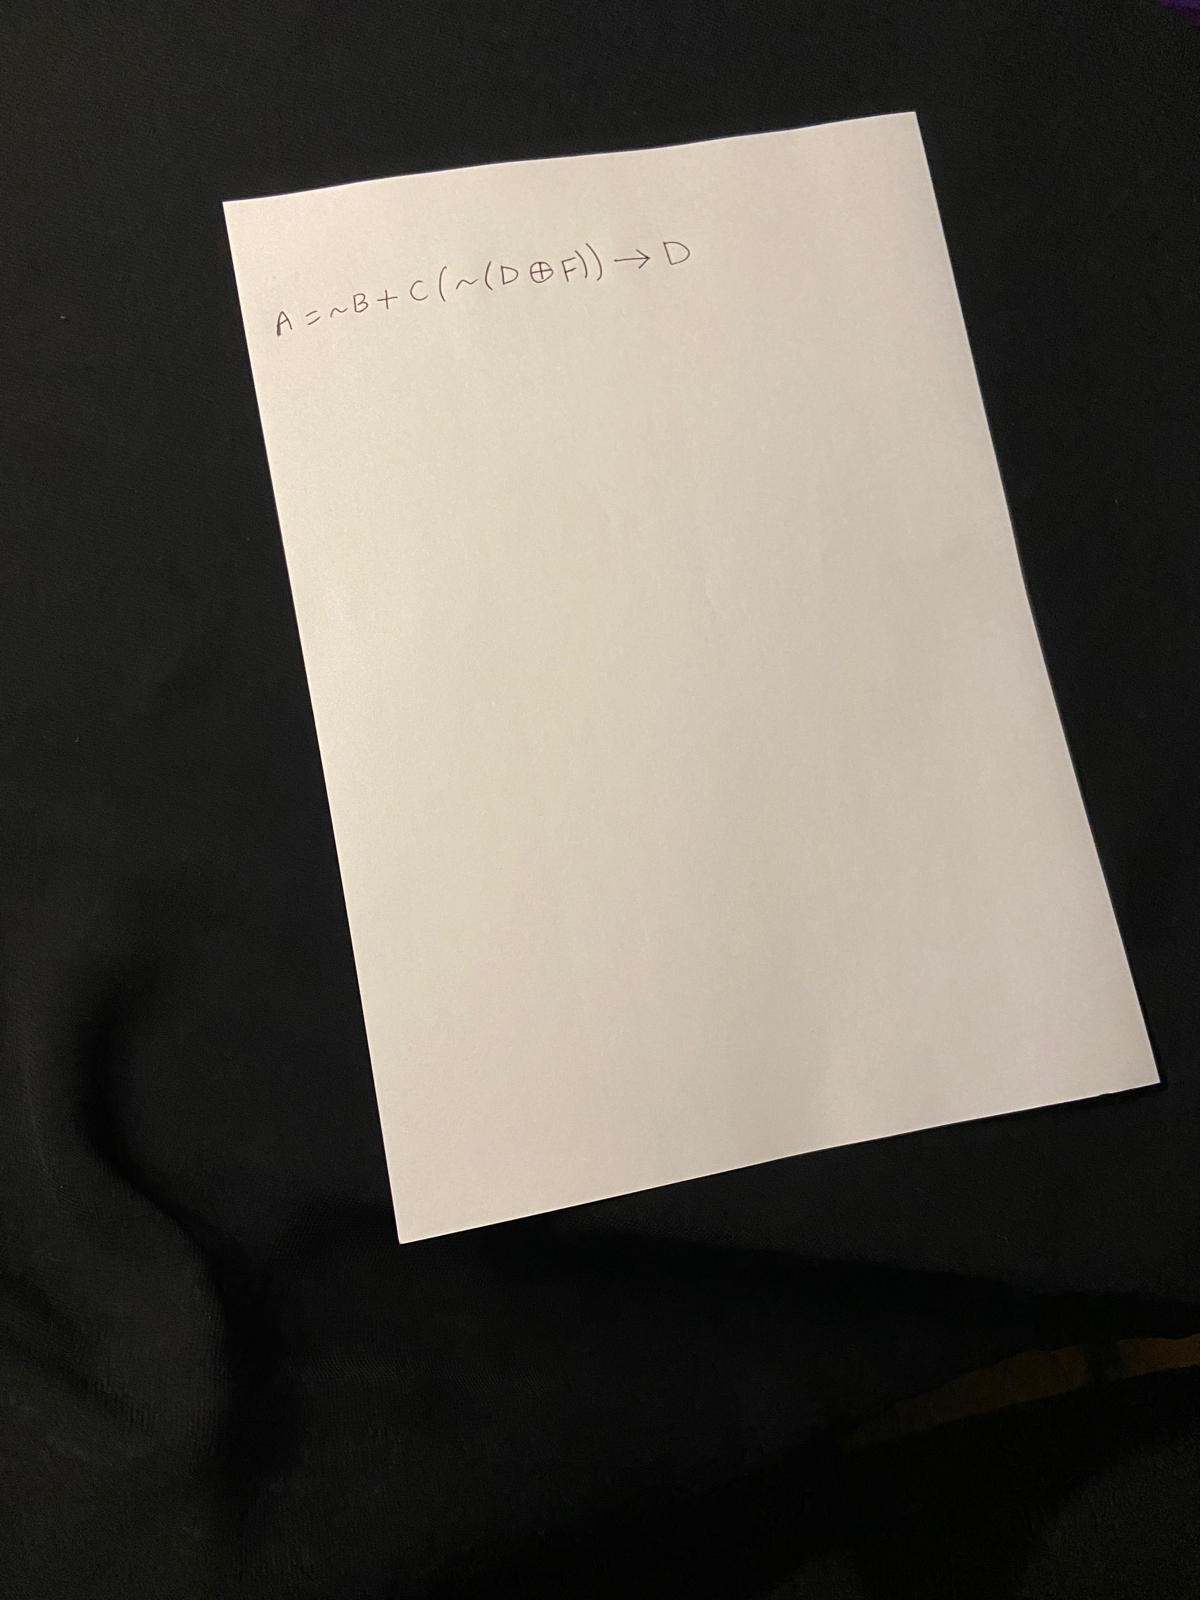 A = ~B + C(~(D ⊕ F)) → D